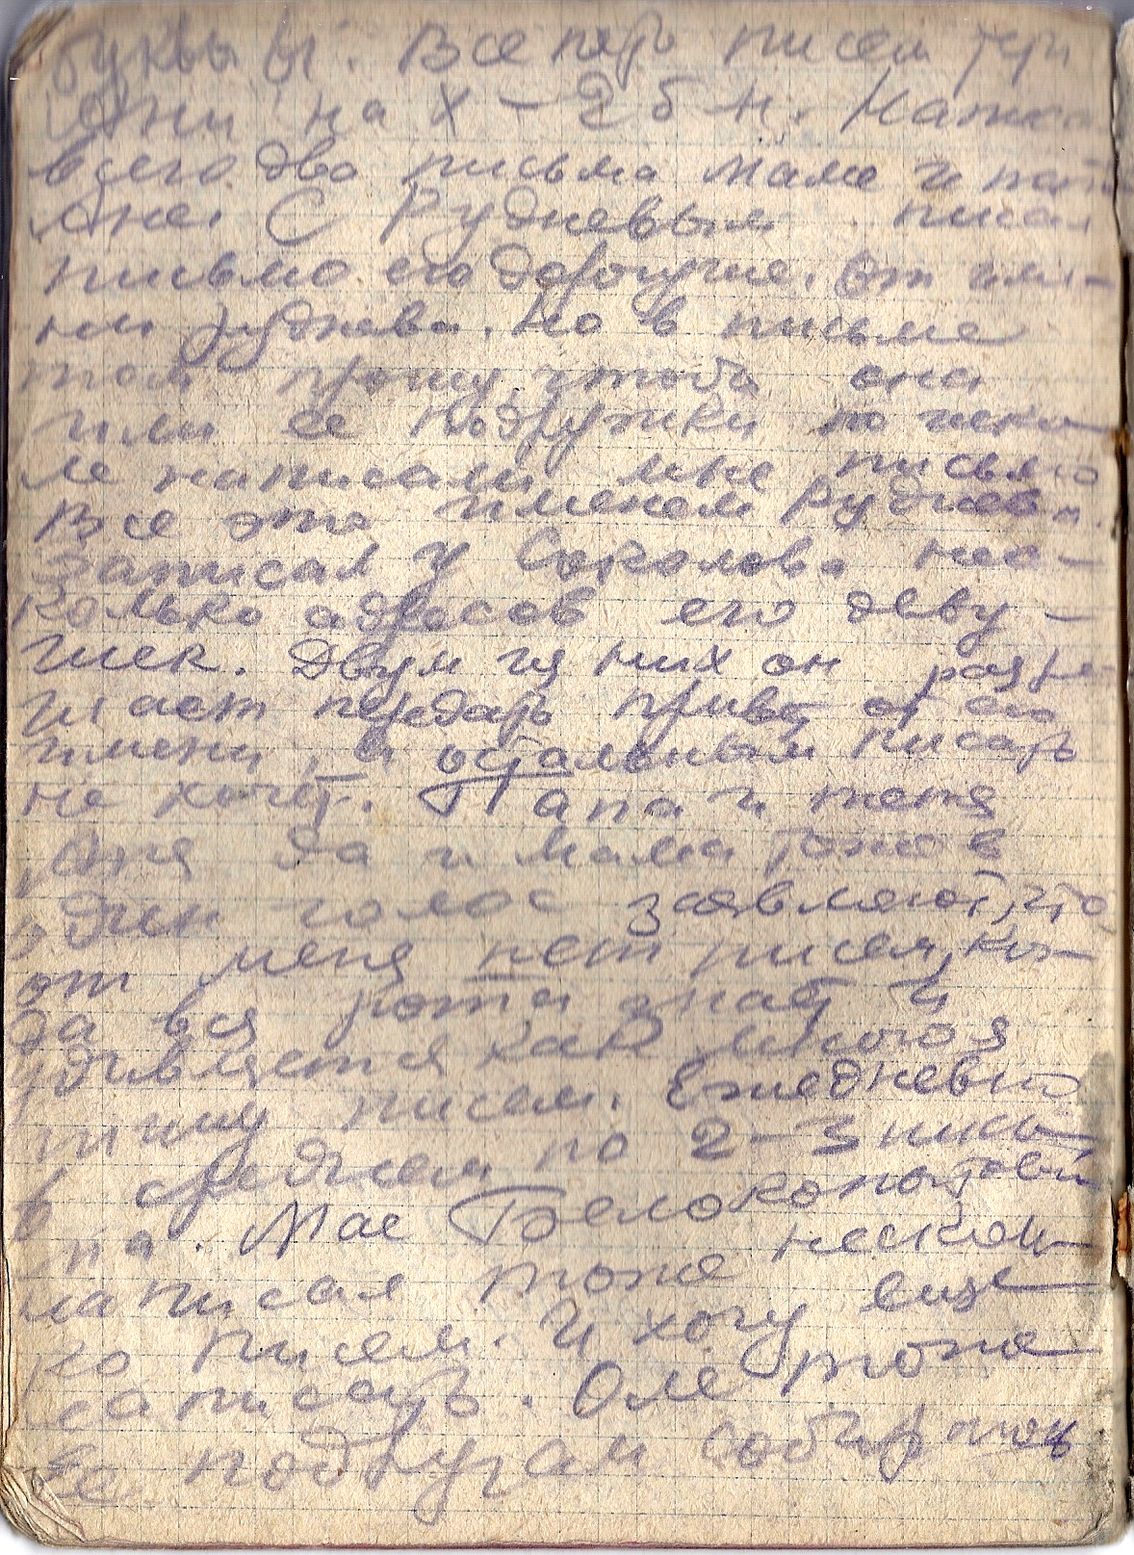 буквы Ы. Все пись писем
Ани на Х – 25 н. Написал
всего два письма маме и
Ане. С Рудневым писал
письмо его девушке. От име-
ни Руднева. Но в письме
том прошу, чтобы она
или её подружки по шко-
ле написали мне письмо
Все это именем Руднева.
Записал у Соколова нес-
колько адресов его деву-
шек. Двум из них он разре-
шает передать привет от его
имени, а остальным писать
не хочет. Папа и тетя
Аня да и мама тоже в
один голос заявляют, что
от меня нет писем, ког-
да вся рота знает и
удивляется как много я
пишу писем. Ежедневно
в среднем по 2–3 пись-
ма. Мае Белокопытовой
написал тоже несколь-
ко писем. И хочу еще
написать. Оле тоже
Ее подругам собираюсь